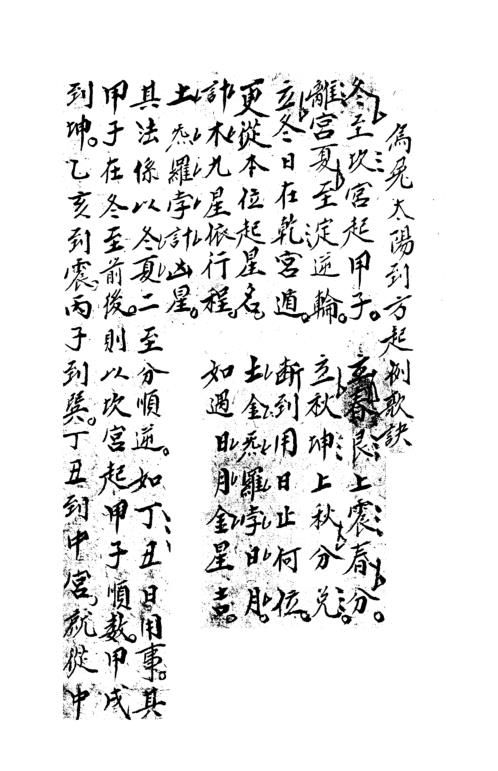 烏兔太陽到方起例歌訣
冬至坎宮起甲子。立春艮上震春分。
離宮夏至逆輪。立秋坤上秋分兌。
立冬日在乾宮遁。斷到用日止何位。
更從本位起星名。土金炁羅孛日月。
計木九星依行程。如過日月金星吉。
土炁羅孛計凶星。
其法係以冬夏二至分順逆。如丁丑日用事。其
甲子在冬至前後。則以坎宮起甲子順數。甲戌
到坤。乙亥到震。丙子到巽。丁丑到中宮。就從中